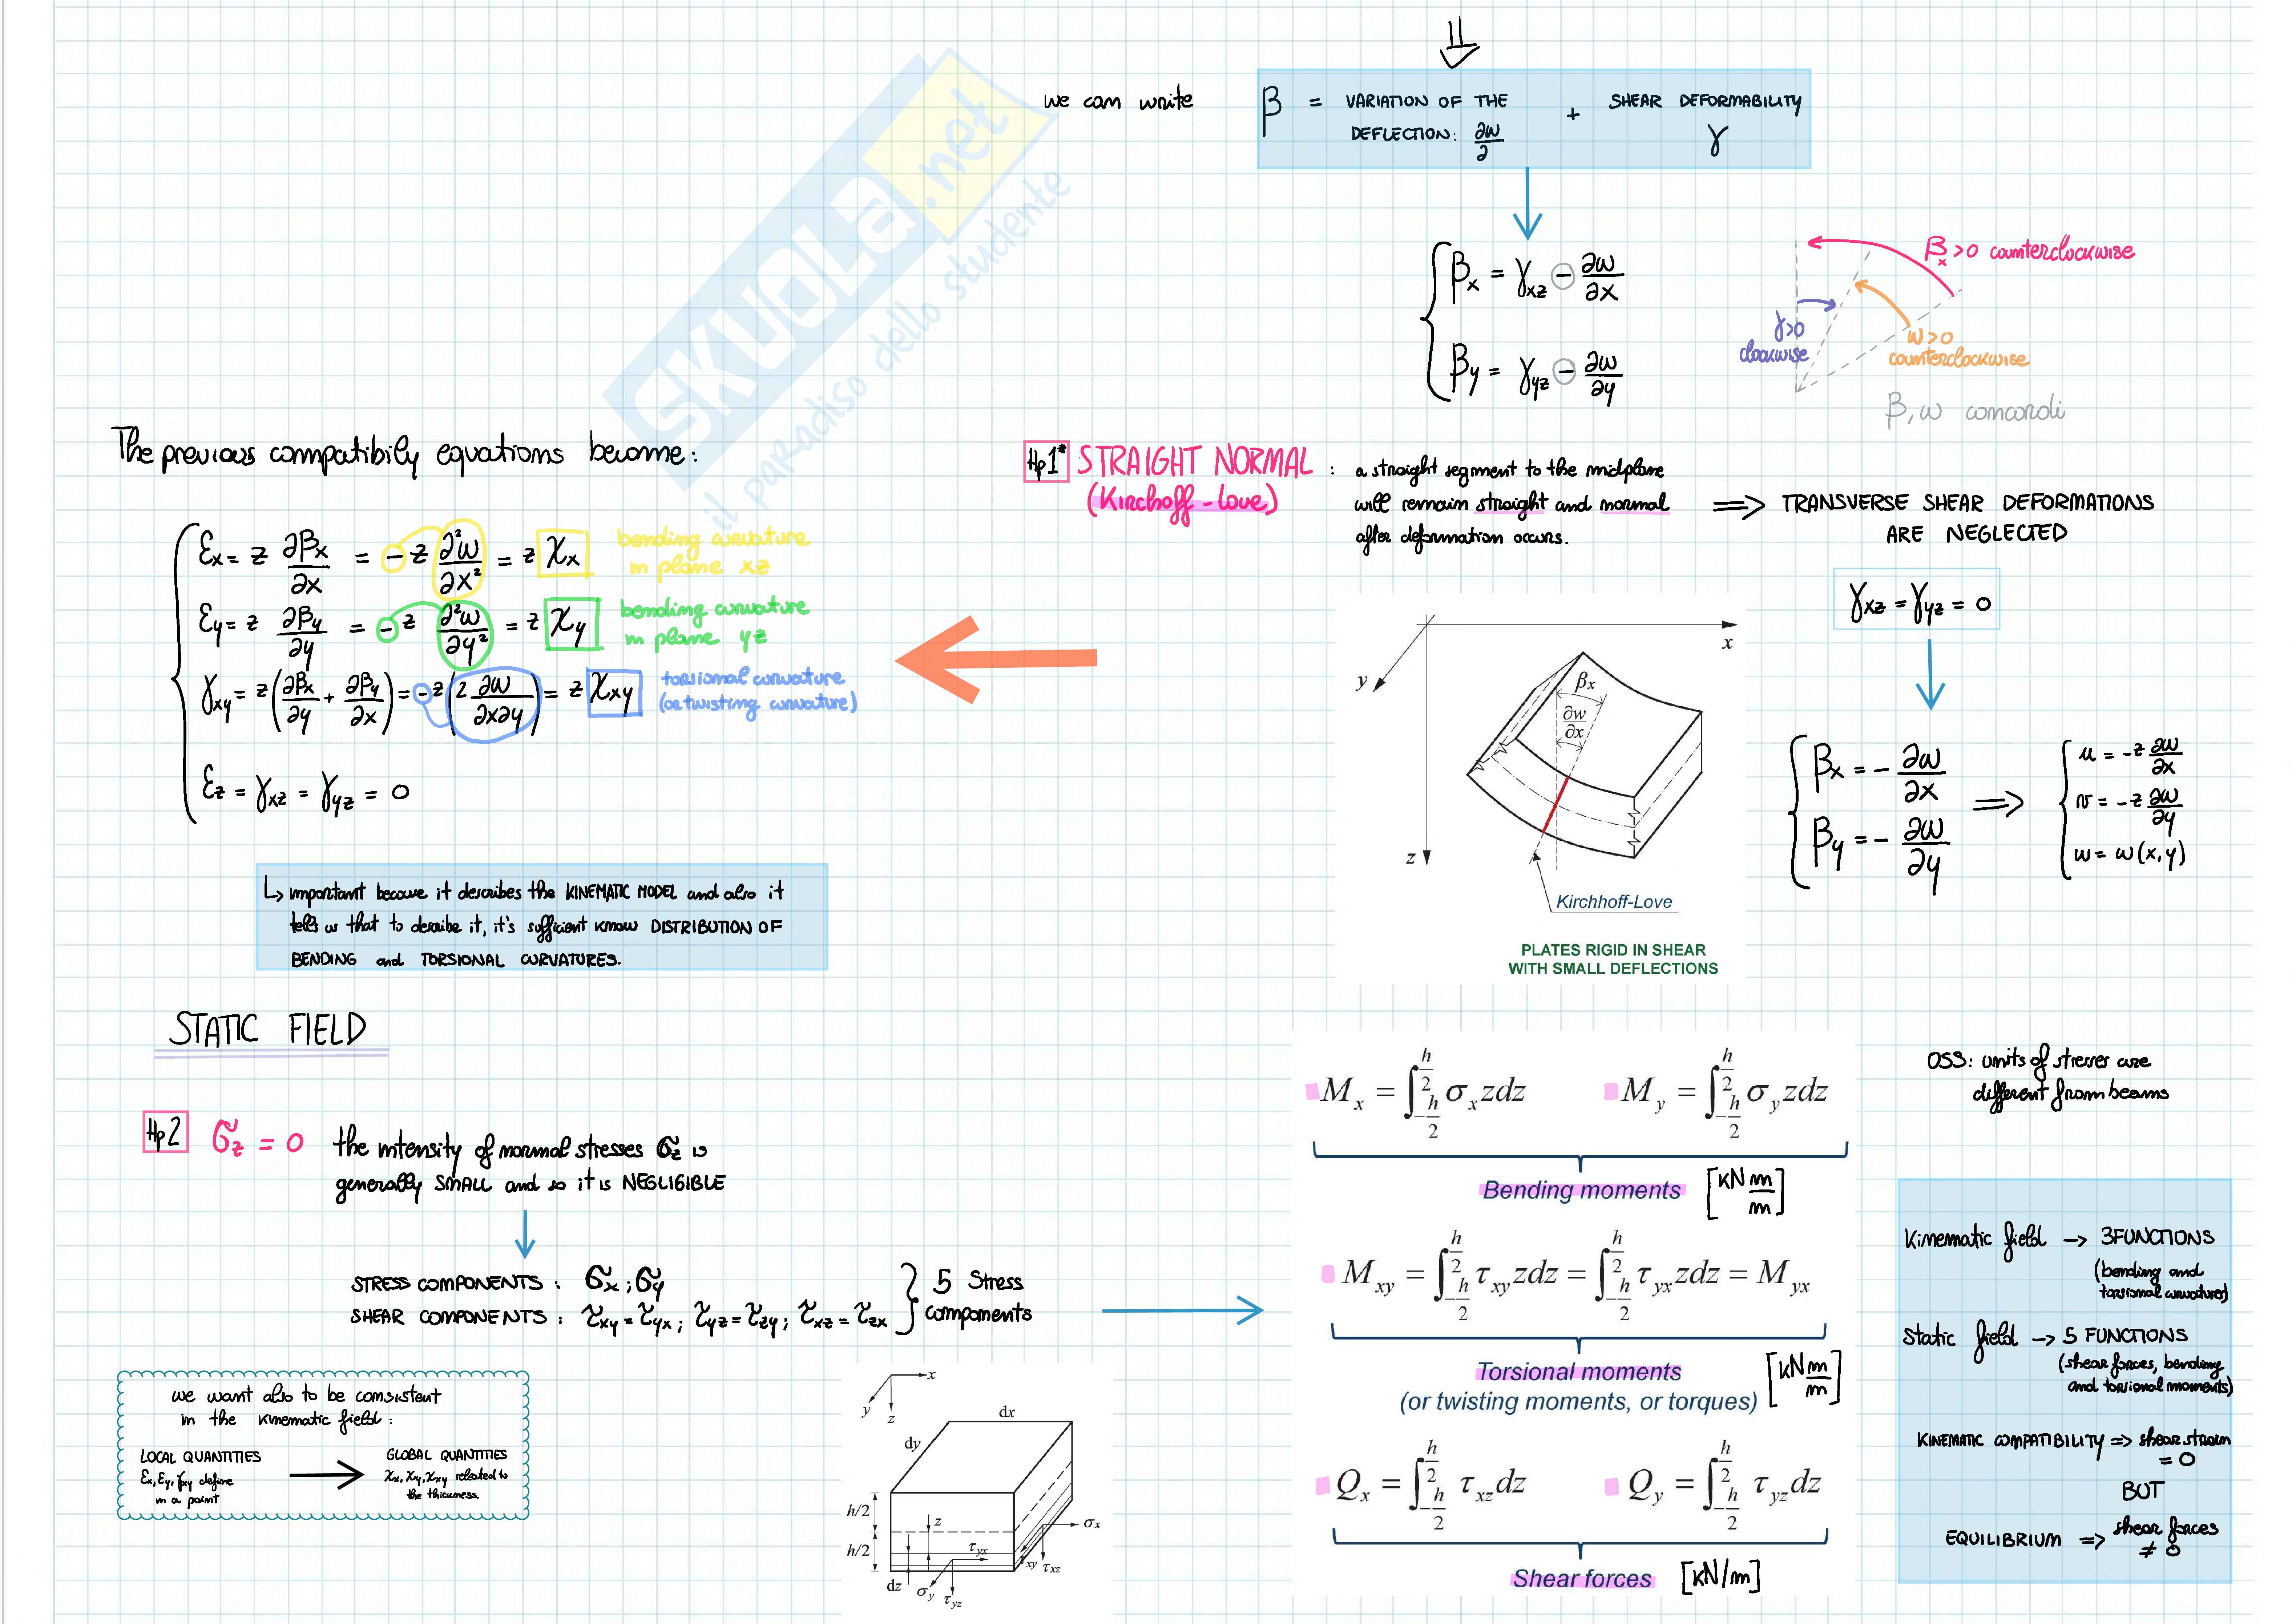 ⇓
we can write
β = VARIATION OF THE DEFLECTION: ∂w/∂ + SHEAR DEFORMABILITY γ
βx = γxz − ∂w/∂x
βy = γyz − ∂w/∂y
βx>0 counterclockwise
γ>0 clockwise
w>0 counterclockwise
β, w concordi
SKUOLA.net
il paradiso dello studente
The previous compatibily equations become:
εx = z ∂βx/∂x = − z ∂²w/∂x² = z χx
bending curvature
in plane xz
εy = z ∂βy/∂y = − z ∂²w/∂y² = z χy
bending curvature
in plane yz
γxy = z(∂βx/∂y + ∂βy/∂x) = − z(2 ∂w/∂x∂y) = z χxy
torsional curvature
(or twisting curvature)
εz = γxz = γyz = 0
↳ important becaue it describes the KINEMATIC MODEL and also it
tells us that to describe it, it's sufficient know DISTRIBUTION OF
BENDING and TORSIONAL CURVATURES.
Hp1* STRAIGHT NORMAL :
(Kirchoff-Love)
a straight segment to the midplane
will remain straight and normal
after deformation occurs.
⇒ TRANSVERSE SHEAR DEFORMATIONS
ARE NEGLECTED
γxz = γyz = 0
βx = − ∂w/∂x
βy = − ∂w/∂y
⇒
u = −z ∂w/∂x
v = −z ∂w/∂y
w = w(x,y)
x
y
z
βx
∂w/∂x
Kirchhoff-Love
PLATES RIGID IN SHEAR
WITH SMALL DEFLECTIONS
STATIC FIELD
Hp2 σz = 0 the intensity of normal stresses σz is
generally SMALL and so it is NEGLIGIBLE
STRESS COMPONENTS : σx ; σy
SHEAR COMPONENTS : τxy = τyx ; τyz = τzy ; τxz = τzx
} 5 Stress
components
we want also to be consistent
in the kinematic field :
LOCAL QUANTITIES
εx, εy, γxy define
in a point
→
GLOBAL QUANTITIES
χx, χy, χxy related to
the thickness.
x
y
z
dx
dy
h/2
h/2
z
dz
σx
τyx
τxy
τxz
σy
τyz
Mx = ∫_{-h/2}^{h/2} σx z dz My = ∫_{-h/2}^{h/2} σy z dz
Bending moments [kN m/m]
Mxy = ∫_{-h/2}^{h/2} τxy z dz = ∫_{-h/2}^{h/2} τyx z dz = Myx
Torsional moments
(or twisting moments, or torques) [kN m/m]
Qx = ∫_{-h/2}^{h/2} τxz dz Qy = ∫_{-h/2}^{h/2} τyz dz
Shear forces [kN/m]
OSS: units of stresses are
different from beams
Kinematic field → 3 FUNCTIONS
(bending and
torsional curvatures)
Static field → 5 FUNCTIONS
(shear forces, bending
and torsional moments)
KINEMATIC COMPATIBILITY ⇒ shear strain
= 0
BUT
EQUILIBRIUM ⇒ shear forces
≠ 0